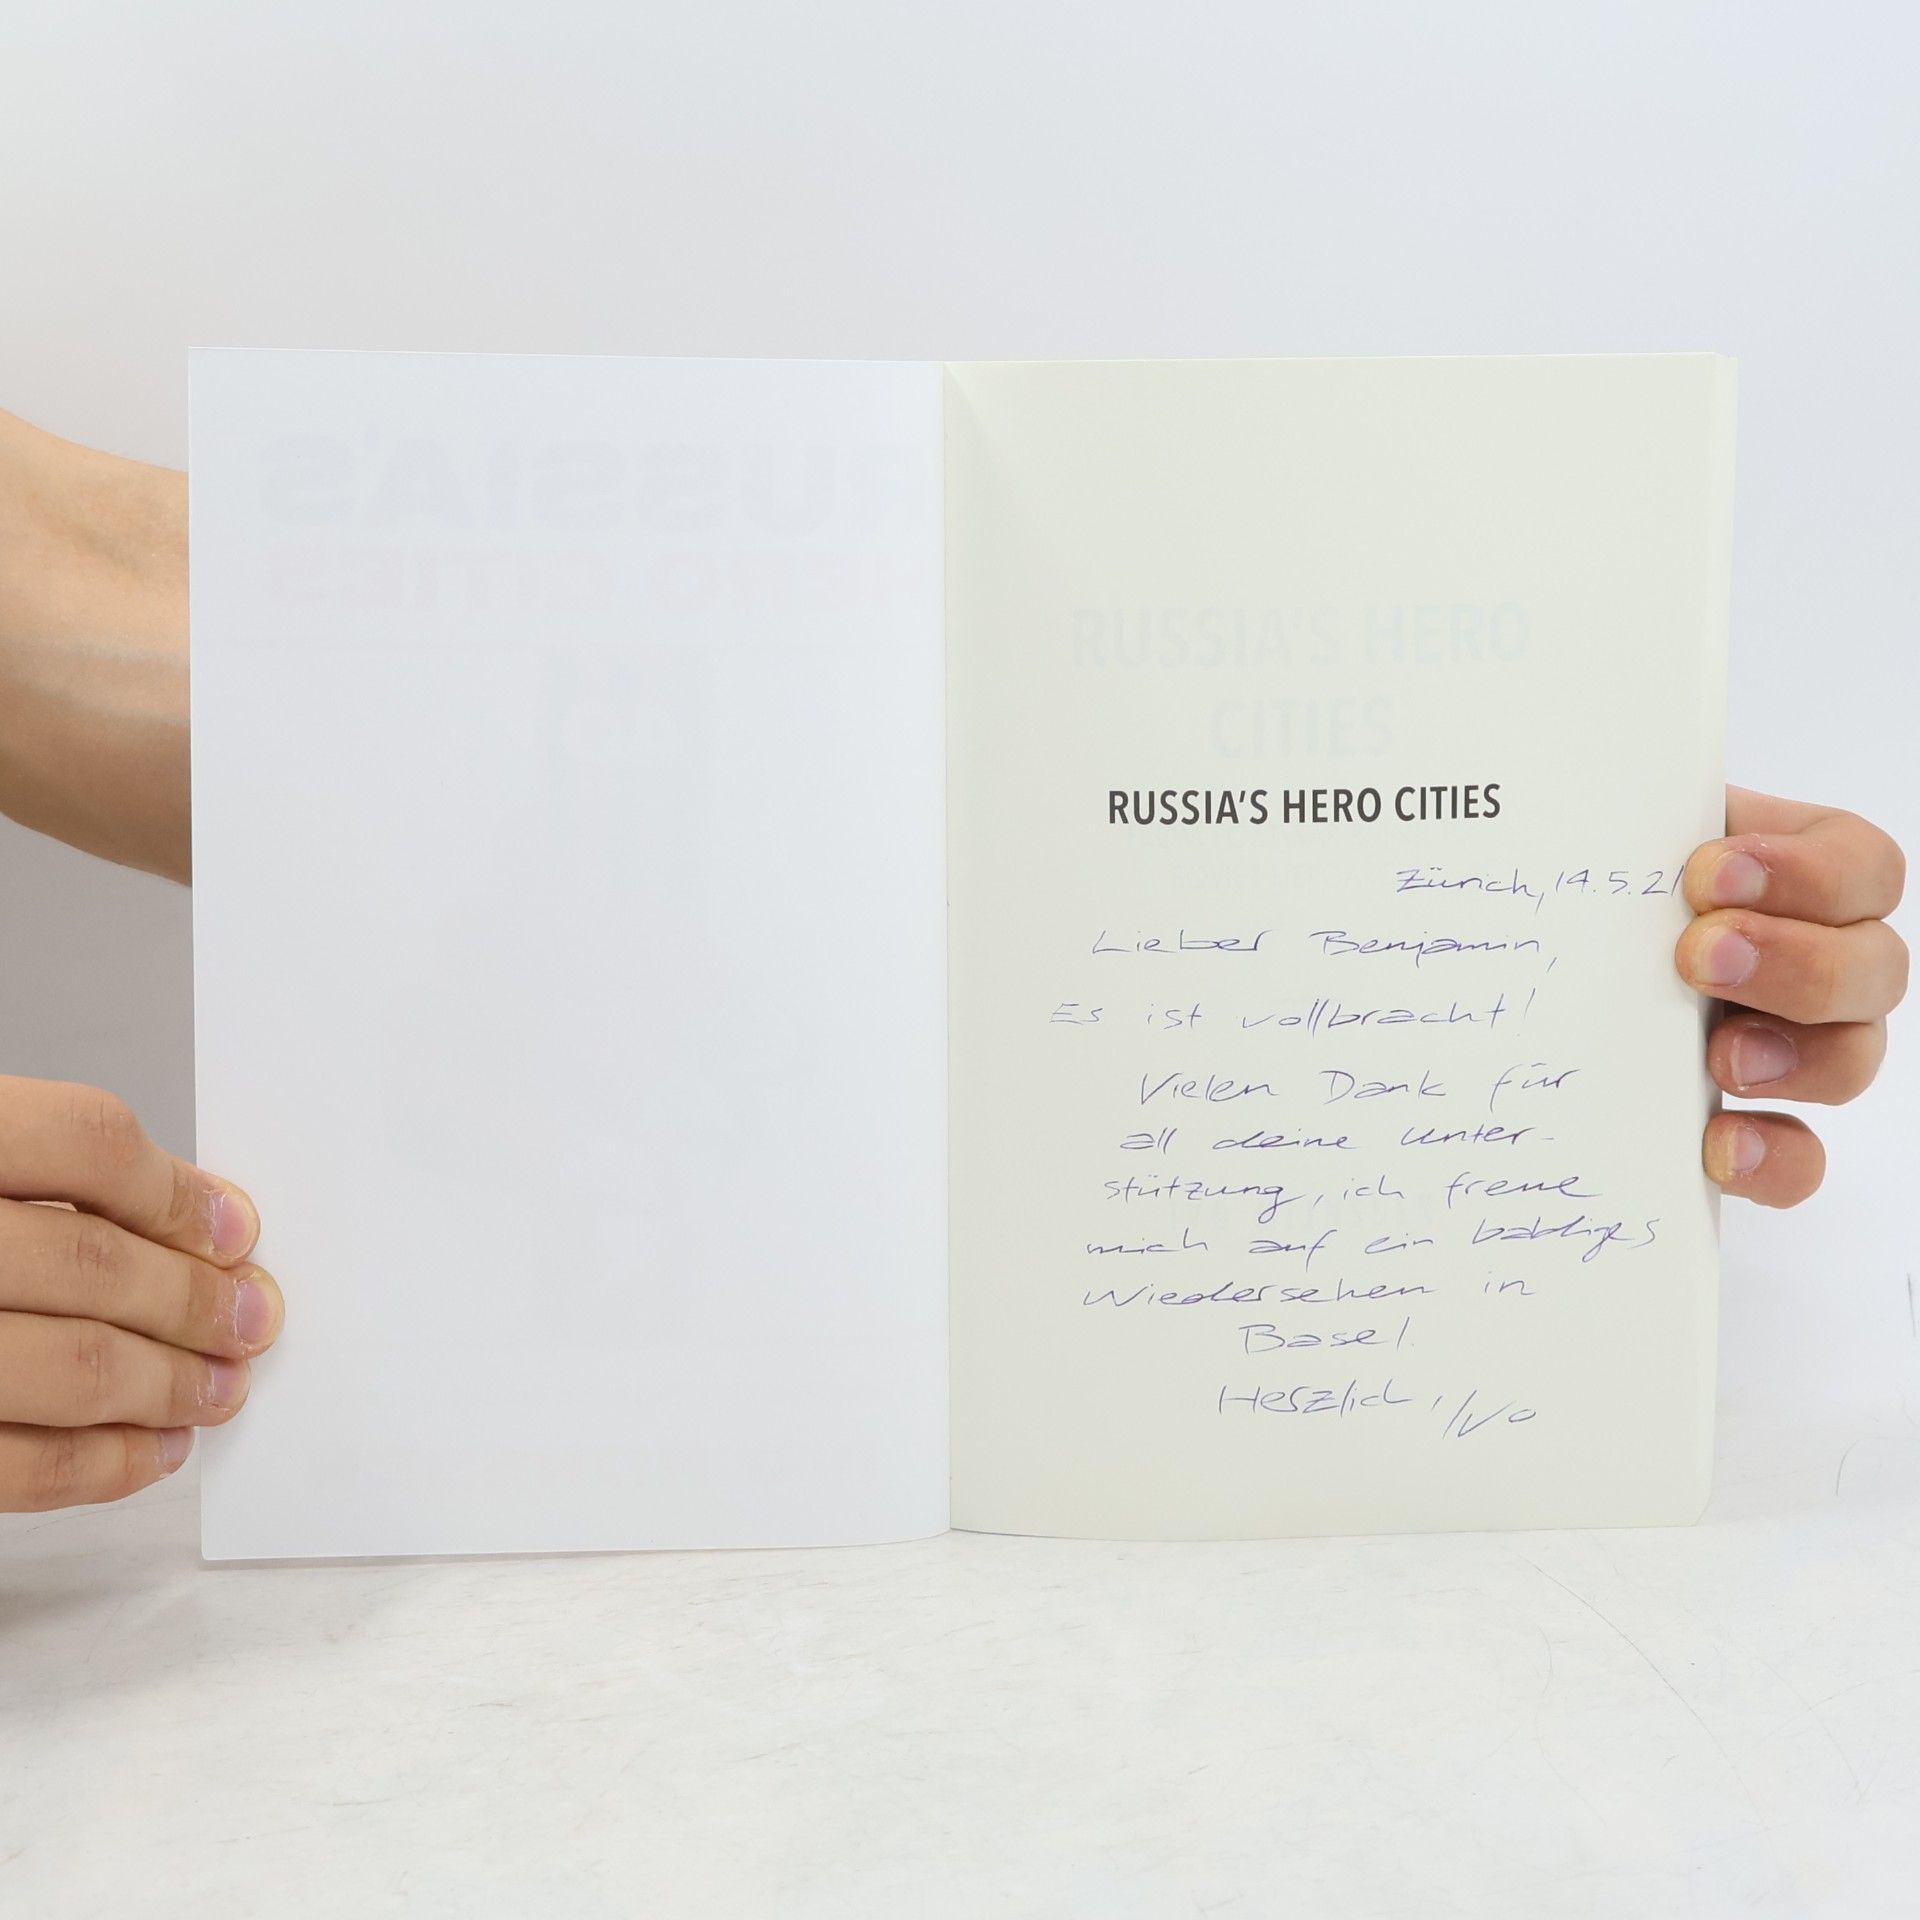 RUSSIA'S
HERO CITIES
RUSSIA'S HERO
CITIES
RUSSIA'S HERO CITIES
Zürich, 14.5.21
Lieber Benjamin,
Es ist vollbracht!
Vielen Dank für
all deine Unter-
stützung, ich freue
mich auf ein baldiges
Wiedersehen in
Basel.
Herzlich, Ivo